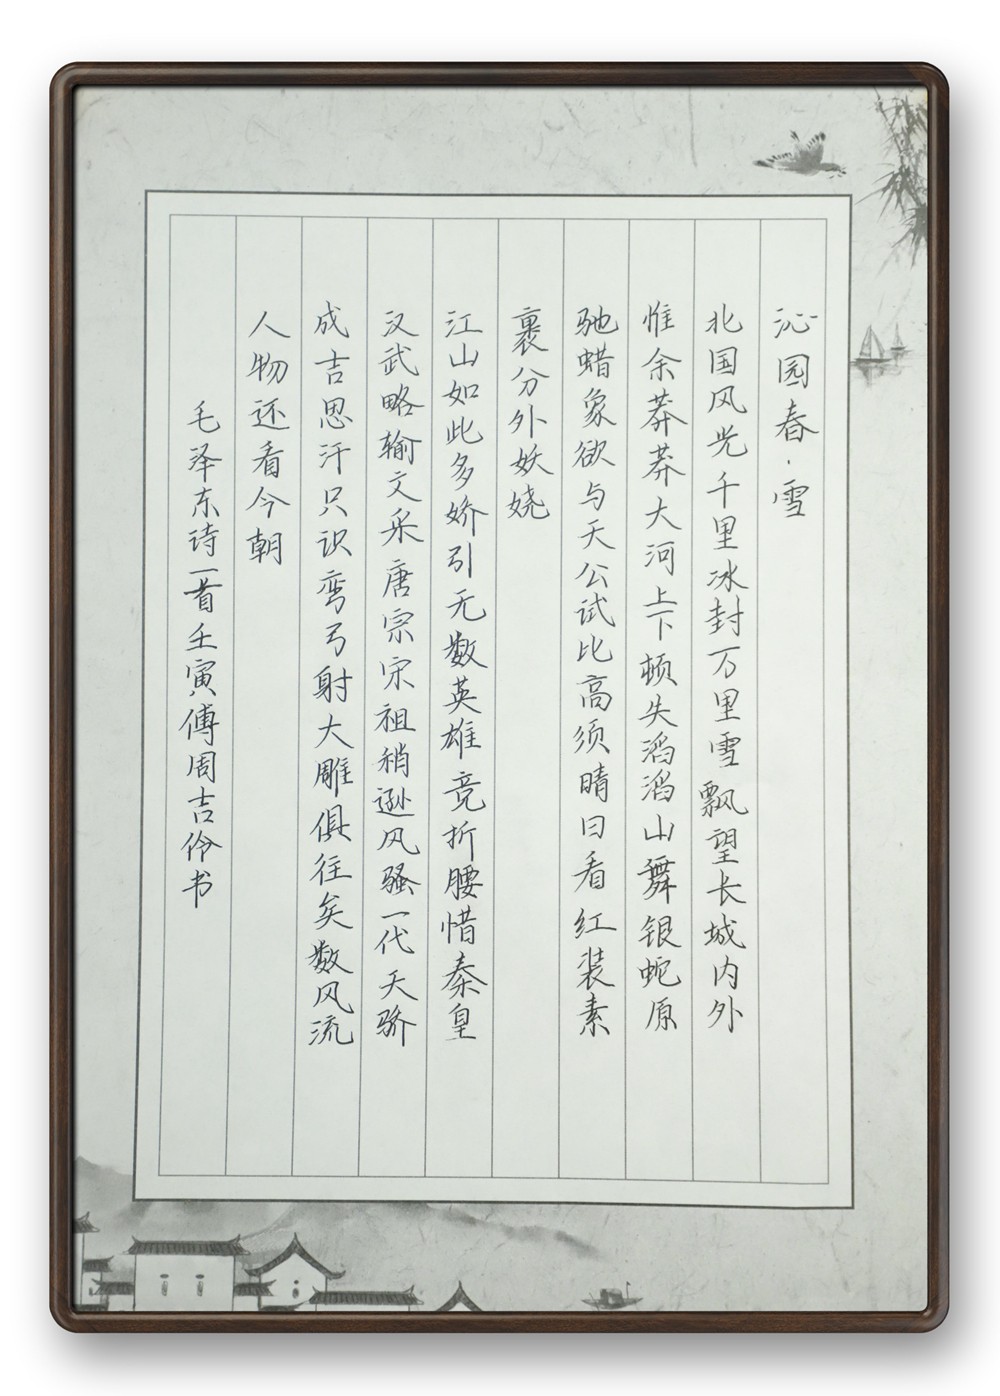 沁园春·雪
北国风光千里冰封万里雪飘望长城内外
惟余莽莽大河上下顿失滔滔山舞银蛇原
驰蜡象欲与天公试比高须晴日看红装素
裹分外妖娆
江山如此多娇引无数英雄竞折腰惜秦皇
汉武略输文采唐宗宋祖稍逊风骚一代天骄
成吉思汗只识弯弓射大雕俱往矣数风流
人物还看今朝
毛泽东诗一首壬寅傅周吉伶书